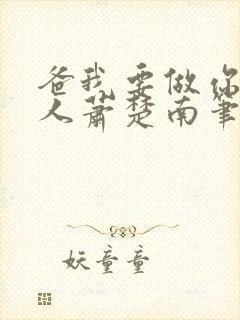 爸我要做你
人萧楚南笔
妖童童